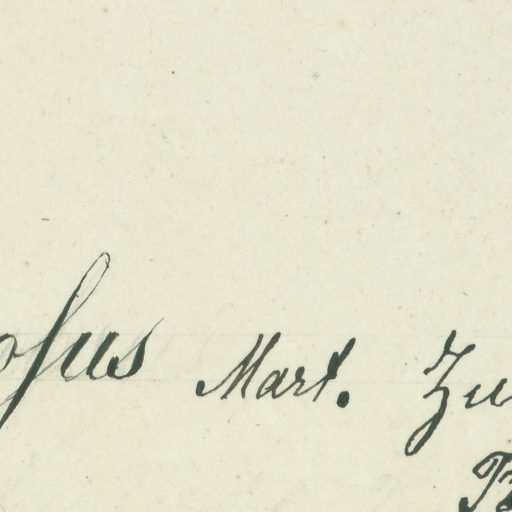 osus Mart. Zu